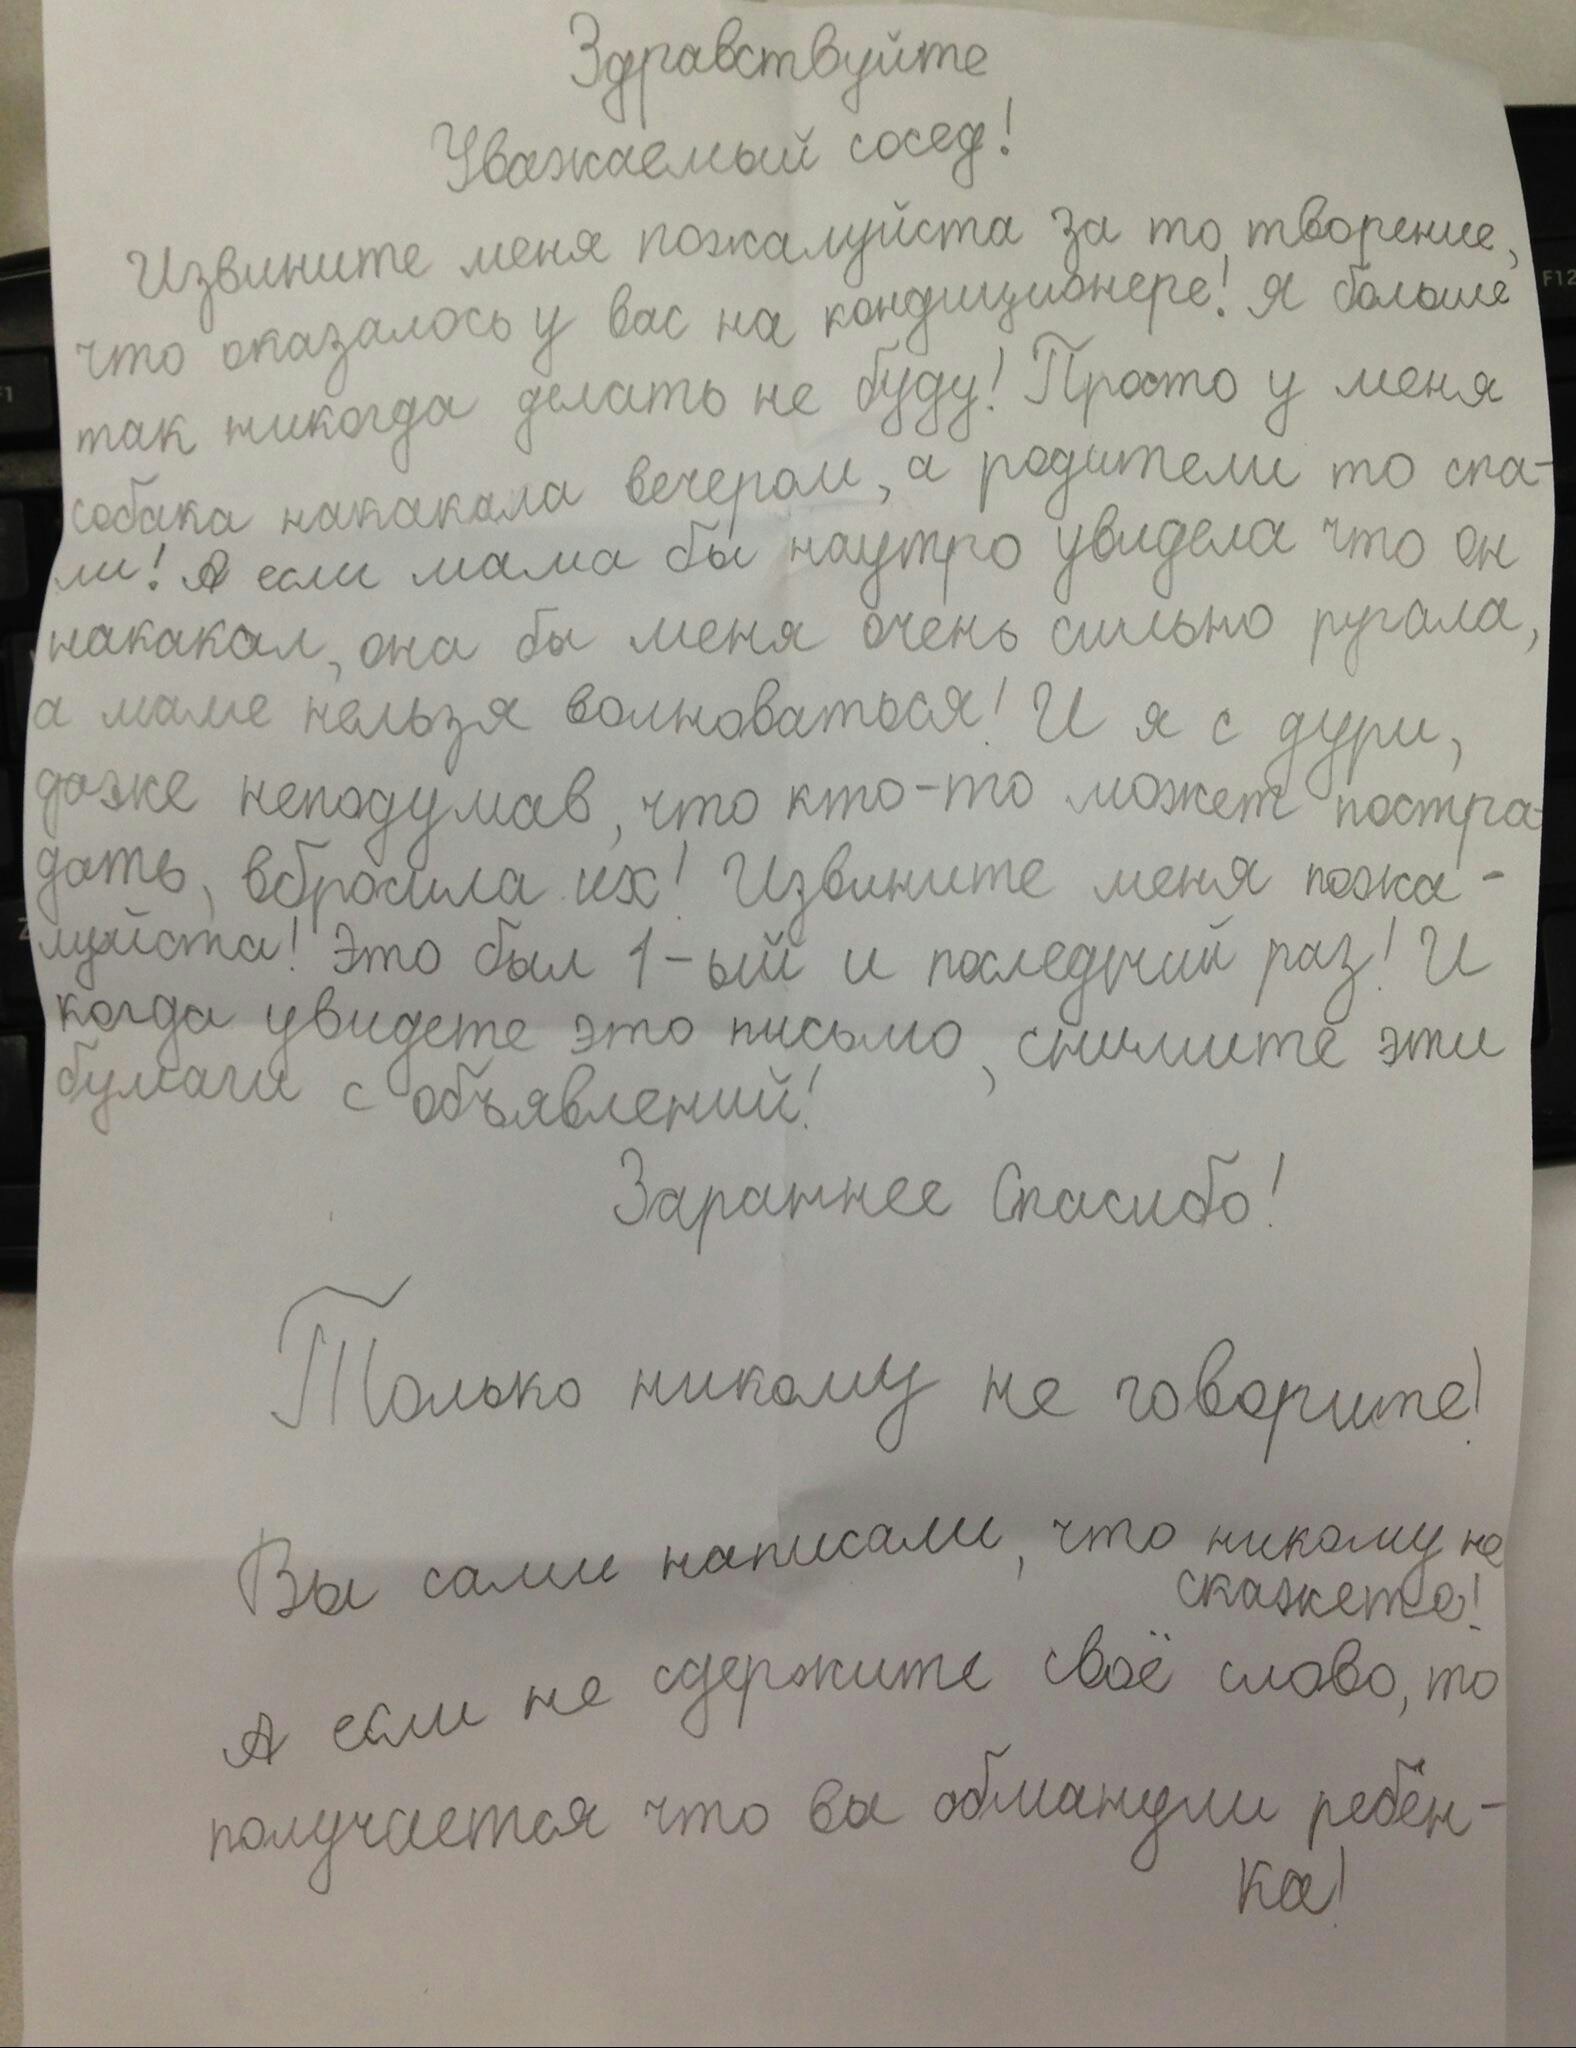 Здравствуйте
Уважаемый сосед!
Извините меня пожалуйста за то творение,
что оказалось у вас на кондиционере! Я больше
так никогда делать не буду! Просто у меня
собака накакала вечером, а родители то спа-
ли! А если мама бы наутро увидела что он
накакал, она бы меня очень сильно ругала,
а маме нельзя волноваться! И я с дури,
даже неподумав, что кто-то может постра-
дать, вбросила их! Извините меня пожа-
луйста! Это был 1-ый и последний раз! И
когда увидете это письмо, снимите эти
бумаги с объявлений!
Зараннее Спасибо!
Только никому не говорите!
Вы сами написали, что никому не
скажете!
А если не сдержите своё слово, то
получается что вы обманули ребён-
ка!